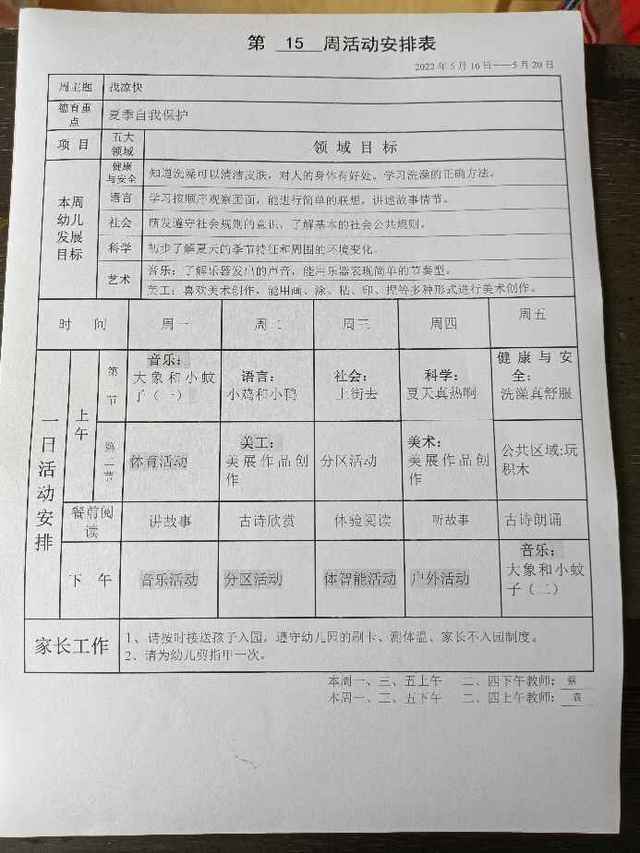 第 15 周活动安排表
2022年5月16日——5月20日
周主题 找凉快
德育重点 夏季自我保护
项目 五大领域 领域目标
本周幼儿发展目标
健康与安全 知道洗澡可以清洁皮肤，对人的身体有好处。学习洗澡的正确方法。
语言 学习按顺序观察画面，能进行简单的联想，讲述故事情节。
社会 萌发遵守社会规则的意识，了解基本的社会公共规则。
科学 初步了解夏天的季节特征和周围的环境变化。
艺术 音乐：了解乐器发出的声音，能用乐器表现简单的节奏型。
美工：喜欢美术创作，能用画、涂、粘、印、捏等多种形式进行美术创作。
时间 周一 周二 周三 周四 周五
一日活动安排
上午
第一节 音乐：大象和小蚊子（一） 语言：小鸡和小鸭 社会：上街去 科学：夏天真热啊 健康与安全：洗澡真舒服
第二节 体育活动 美工：美展作品创作 分区活动 美术：美展作品创作 公共区域:玩积木
餐前阅读 讲故事 古诗欣赏 体验阅读 听故事 古诗朗诵
下午 音乐活动 分区活动 体智能活动 户外活动 音乐：大象和小蚊子（二）
家长工作 1、请按时接送孩子入园，遵守幼儿园的刷卡、测体温、家长不入园制度。
2、请为幼儿剪指甲一次。
本周一、三、五上午 二、四下午教师：
本周一、三、五下午 二、四上午教师：袁